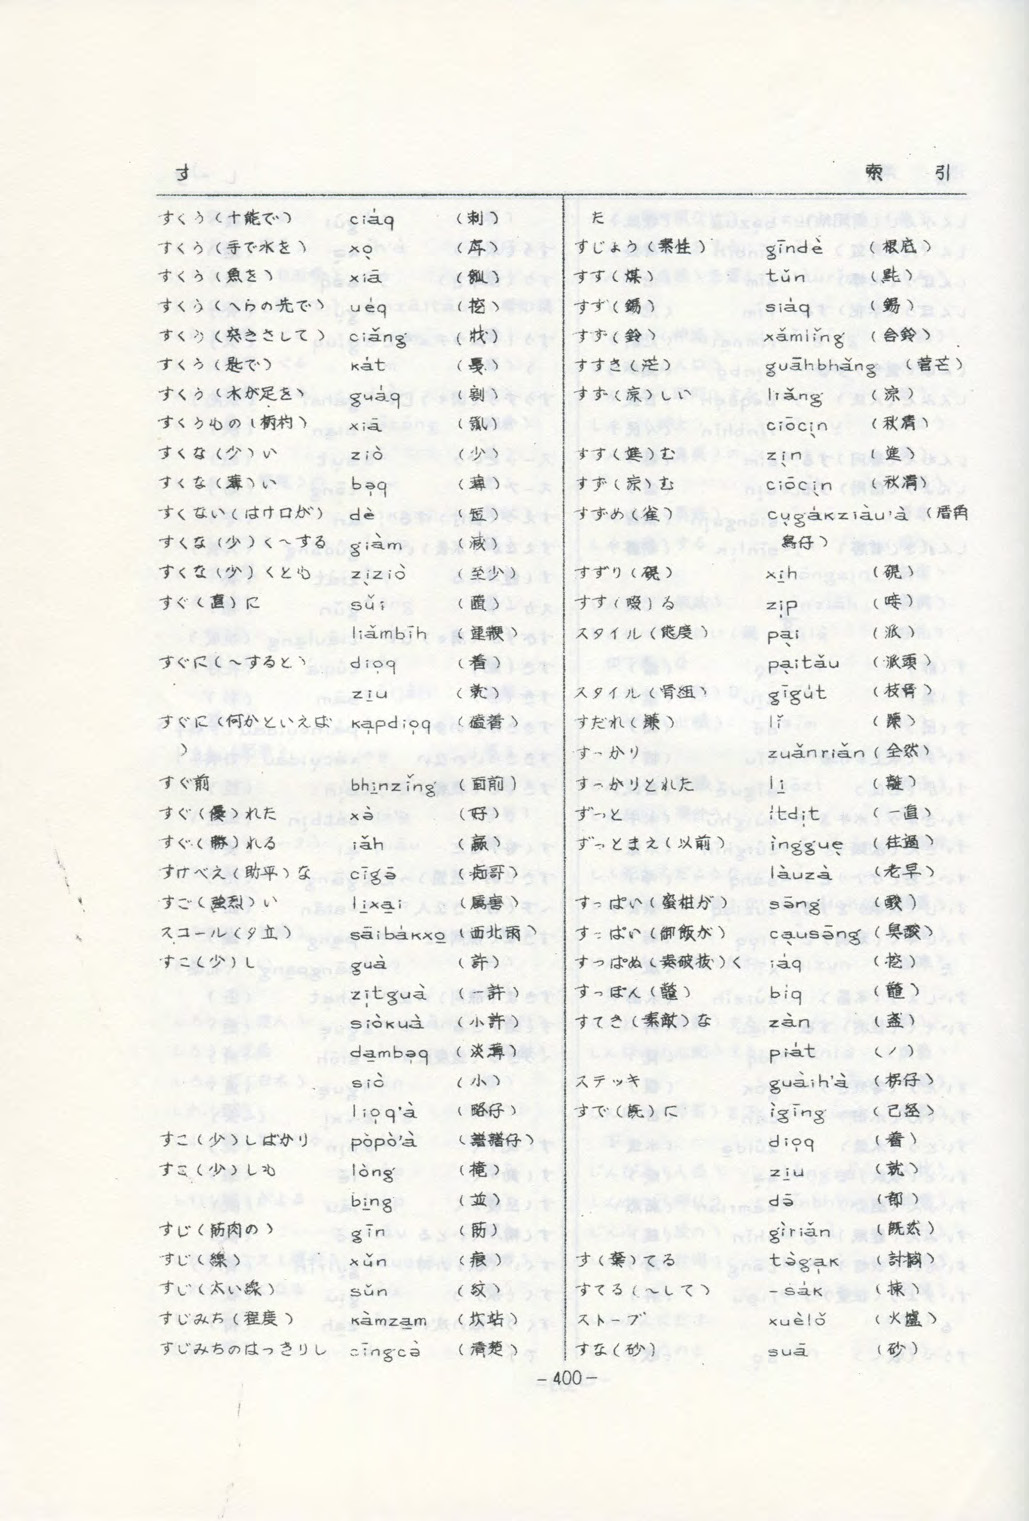 す 索引
すくう(十能で) ciáq (刺)
すくう(手で水を) xọ (戽)
すくう(魚を) xiā
すくう(へらの先で) uéq (挖)
すくう(突きさして) ciǎng
すくう(匙で) kát (戞)
すくう(木が足を) guáq (刮)
すくうもの(柄杓) xiā
すくな(少)い ziò (少)
すくな(薄)い bạq (薄)
すくない(はけ口が) dè (短)
すくな(少)く〜する giàm (減)
すくな(少)くとも zịziò (至少)
すぐ(直)に sǔi
liǎmbīh (連鞭)
すぐに(〜すると) diọq (着)
zịu (就)
すぐに(何かといえば kạpdiọq (磕着)
)
すぐ前 bhịnzǐng (面前)
すぐ(優)れた xò (好)
すぐ(勝)れる iǎh (贏)
すけべえ(助平)な cīgō (痴哥)
すご(強烈)い lịxại (厲害)
スコール(夕立) sāibákxọ (西北雨)
すこ(少)し guà (許)
zịtguà (一許)
siòkuà (小許)
dạmbọq (淡薄)
siò (小)
liọq'à (略仔)
すこ(少)しばかり pòpò'à
すこ(少)しも lòng
bịng (並)
すじ(筋肉の) gīn (筋)
すじ(線) xǔn (痕)
すじ(太い線) sǔn (紋)
すじみち(程度) kàmzạm (坎站)
すじみちのはっきりし cīngcò (清楚)
た
すじょう(素性) gīndè (根底)
すす(煤) tǔn
すず(錫) siáq (錫)
すず(鈴) xǎmlǐng (含鈴)
すすき(茫) guāhbhǎng (菅芒)
すず(涼)しい liǎng (涼)
ciōcịn (秋凊)
すす(進)む zịn (進)
すず(涼)む ciōcịn (秋凊)
すずめ(雀) cụgákziàu'à (厝角
鳥仔)
すずり(硯) xịh (硯)
すす(啜)る zịp
スタイル(態度) pại (派)
pạitǎu (派頭)
スタイル(骨組) gīgút (枝骨)
すだれ(簾) lǐ
すっかり zuǎnriǎn (全然)
すっかりとれた lị (離)
ずっと ítdịt (一直)
ずっとまえ(以前) ìngguẹ (往過)
làuzà (老早)
すっぱい(蜜柑が) sōng
すっぱい(御飯が) cạusōng (臭酸)
すっぱぬ(素破抜)く iáq (挖)
すっぽん(鼈) biq (鼈)
すてき(素敵)な zàn (盞)
piát (/)
ステッキ guàih'à (枴仔)
すで(既)に ìgīng (已經)
diọq (着)
zịu (就)
dō (都)
gìriǎn (既然)
す(棄)てる
すてる(〜して) -sák (㨃)
ストーブ xuèlǒ (火爐)
すな(砂) suā (砂)
-400-